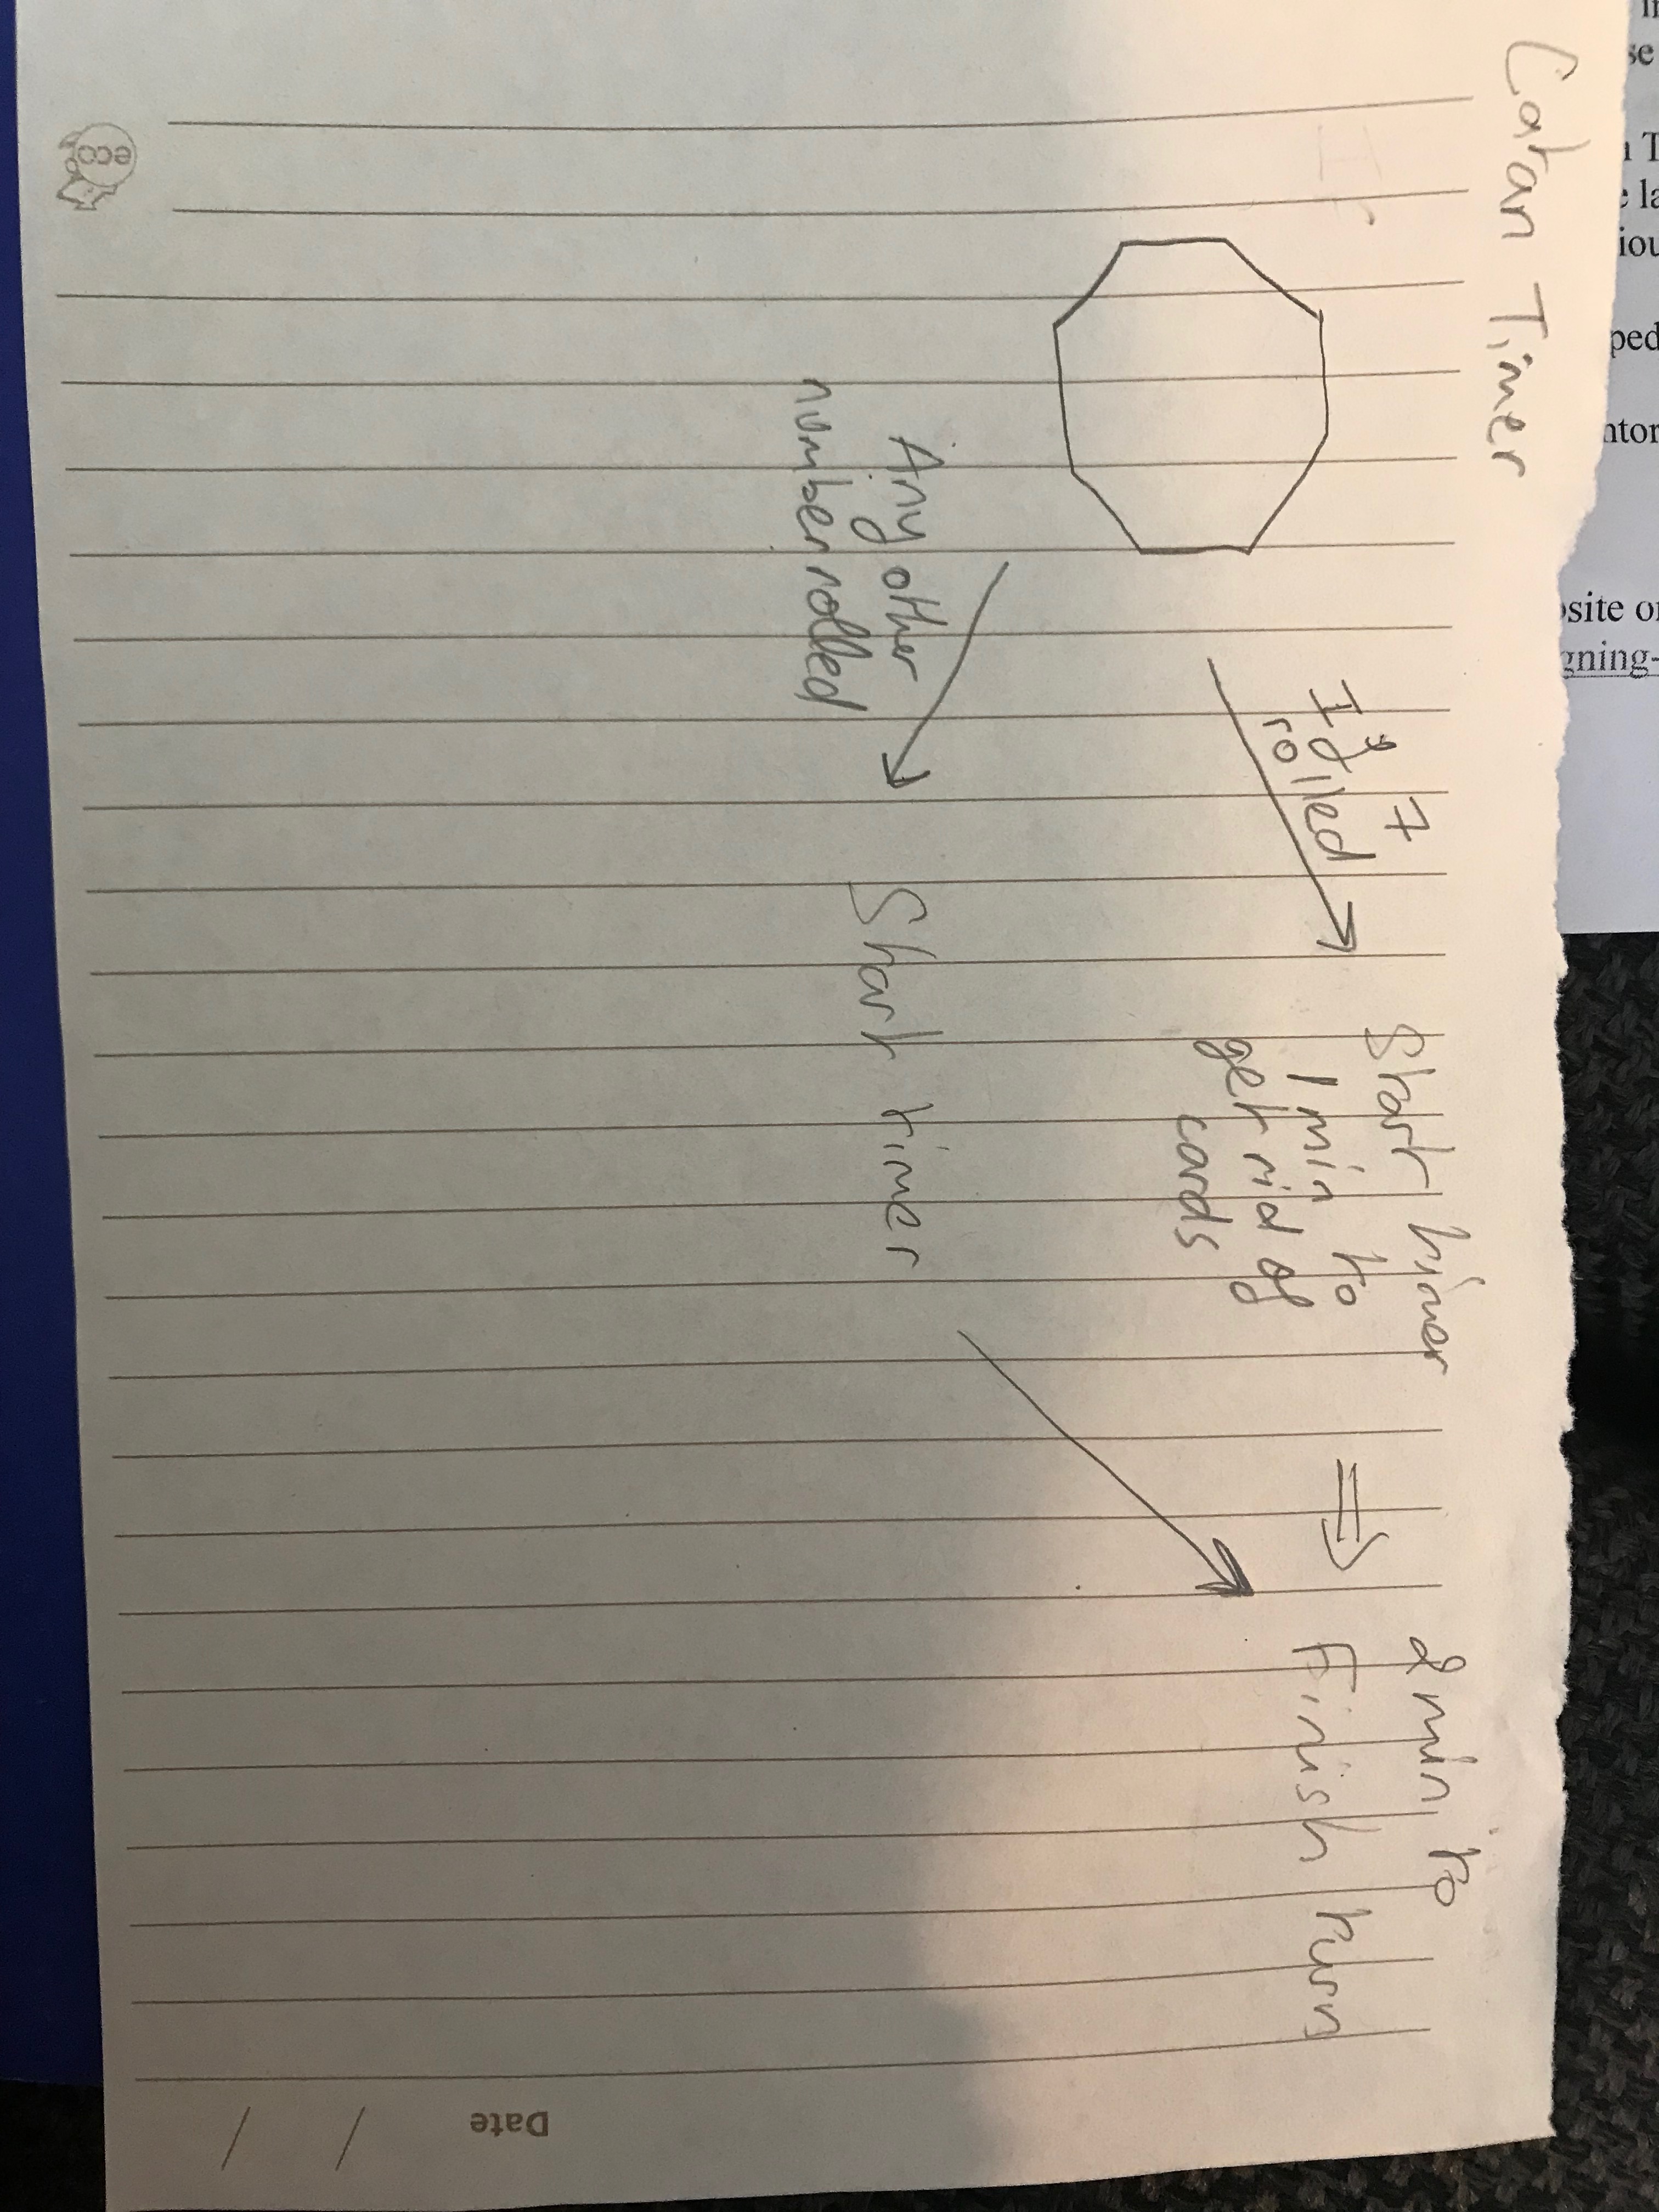 Catan Timer
If 7
rolled
Start timer
1 min to
get rid of
cards
2 min to
Finish turn
Any other
number rolled
Start timer
eco
Date / /
se
site or
gning-